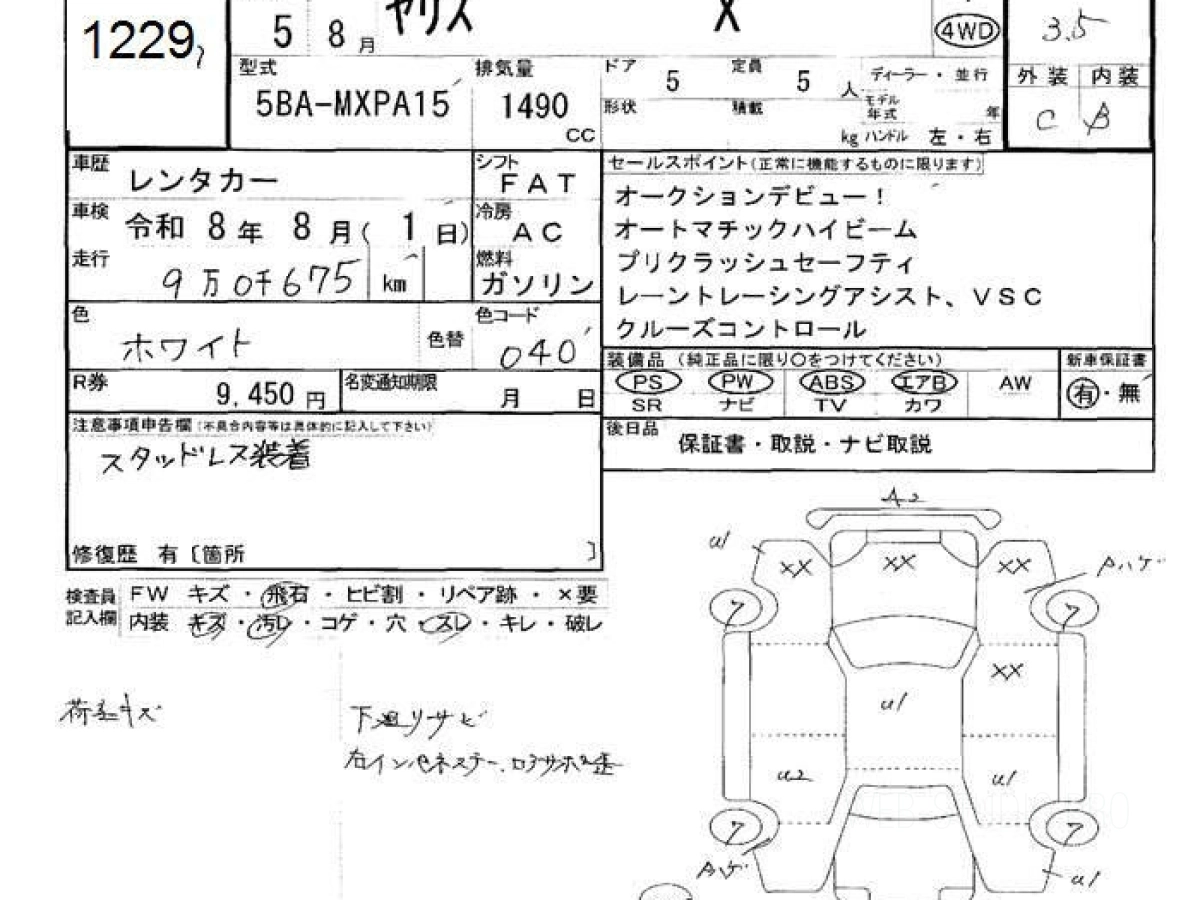 1229
5 8月 ヤリス X 4WD 3.5
型式 排気量 ドア 5 定員 5 人 ディーラー・並行 外装 内装
5BA-MXPA15 1490 CC 形状 積載 kg モデル年式 年 C B
ハンドル 左・右
車歴 レンタカー シフト FAT
車検 令和 8年 8月( 1日) 冷房 AC
走行 9万0千675 km 燃料 ガソリン
色 ホワイト 色替 色コード 040
R券 9,450円 名変通知期限 月 日
セールスポイント(正常に機能するものに限ります)
オークションデビュー!
オートマチックハイビーム
プリクラッシュセーフティ
レーントレーシングアシスト、VSC
クルーズコントロール
装備品 (純正品に限り○をつけてください) 新車保証書
PS PW ABS エアB AW 有・無
SR ナビ TV カワ
後日品 保証書・取説・ナビ取説
注意事項申告欄(不具合内容等は具体的に記入して下さい)
スタッドレス装着
修復歴 有〔箇所 〕
検査員記入欄
FW キズ・飛石・ヒビ割・リペア跡・×要
内装 キズ・汚レ・コゲ・穴・スレ・キレ・破レ
キズ
下廻りサビ
A2
U1 XX XX XX Aハゲ
7 7
XX
U1
U2 U1
7 7
Aハゲ U1